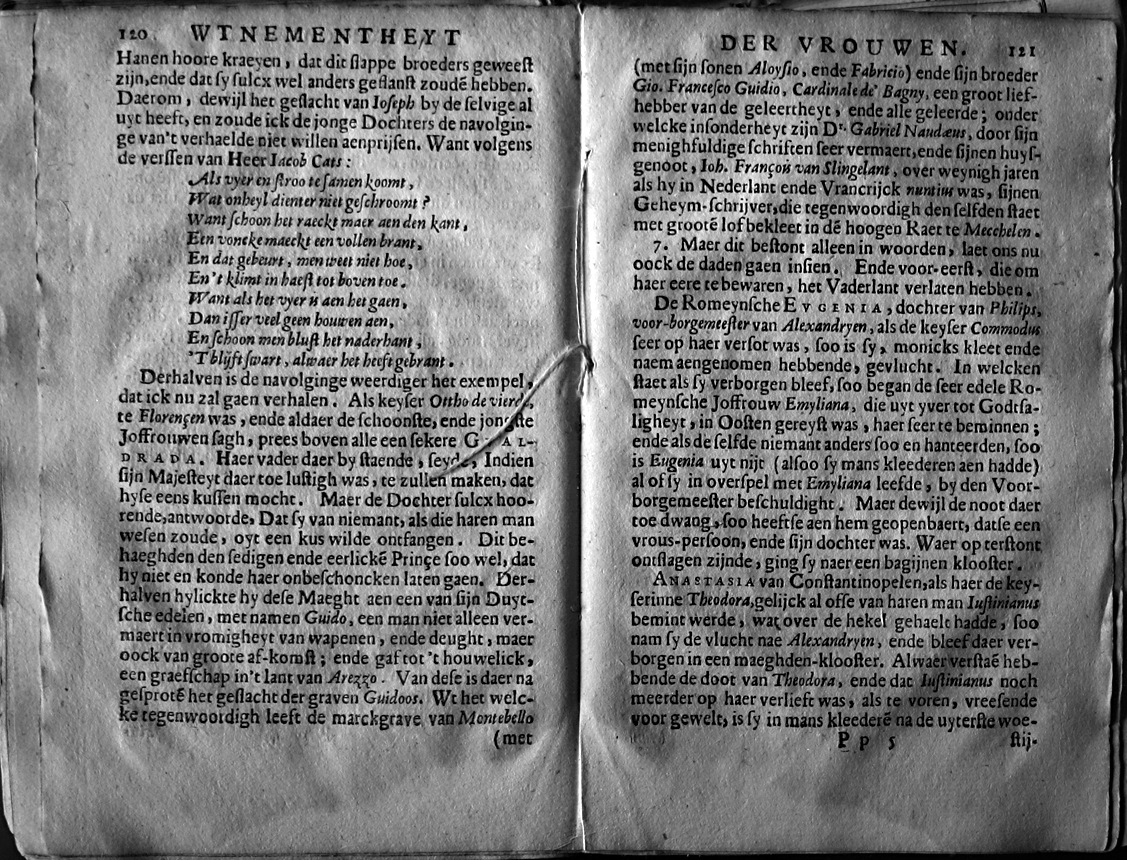 120. WTNEMENTHEYT
Hanen hoore kraeyen, dat dit slappe broeders geweest
zijn, ende dat sy sulcx wel anders geflanst zoudē hebben.
Daerom, dewijl het geslacht van Ioseph by de selvige al
uyt heeft, en zoude ick de jonge Dochters de navolgin-
ge van't verhaelde niet willen aenprijsen. Want volgens
de verssen van Heer Jacob Cats:
Als vyer en stroo te samen koomt,
Wat onheyl dienter niet geschroomt?
Want schoon het raeckt maer aen den kant,
Een voncke maeckt een vollen brant,
En dat gebeurt, men weet niet hoe,
En 't klimt in haest tot boven toe.
Want als het vyer is aen het gaen,
Dan isser veel geen houwen aen,
En schoon men blust het naderhant,
'T blijft swart, alwaer het heeft gebrant.
Derhalven is de navolginge weerdiger het exempel,
dat ick nu zal gaen verhalen. Als keyser Ottho de vierde,
te Florençen was, ende aldaer de schoonste, ende jongste
Joffrouwen sagh, prees boven alle een sekere GUAL-
DRADA. Haer vader daer by staende, seyde, Indien
sijn Majesteyt daer toe lustigh was, te zullen maken, dat
hyse eens kussen mocht. Maer de Dochter sulcx hoo-
rende, antwoorde, Dat sy van niemant, als die haren man
wesen zoude, oyt een kus wilde ontfangen. Dit be-
haeghden den sedigen ende eerlickē Prinçe soo wel, dat
hy niet en konde haer onbeschoncken laten gaen. Der-
halven hylickte hy dese Maeght aen een van sijn Duyt-
sche edelen, met namen Guido, een man niet alleen ver-
maert in vromigheyt van wapenen, ende deught, maer
oock van groote af-komst; ende gaf tot 't houwelick,
een graefschap in't lant van Arezzo. Van dese is daer na
gesprotē het geslacht der graven Guidoos. Wt het welc-
ke tegenwoordigh leeft de marckgrave van Montebello
(met
DER VROUWEN. 121
(met sijn sonen Aloysio, ende Fabricio) ende sijn broeder
Gio. Francesco Guidio, Cardinale de' Bagny, een groot lief-
hebber van de geleertheyt, ende alle geleerde; onder
welcke insonderheyt zijn Dr. Gabriel Naudæus, door sijn
menighfuldige schriften seer vermaert, ende sijnen huys-
genoot, Ioh. François van Slingelant, over weynigh jaren
als hy in Nederlant ende Vrancrijck nuntius was, sijnen
Geheym-schrijver, die tegenwoordigh den selfden staet
met grootē lof bekleet in dē hoogen Raet te Mecchelen.
7. Maer dit bestont alleen in woorden, laet ons nu
oock de daden gaen insien. Ende voor-eerst, die om
haer eere te bewaren, het Vaderlant verlaten hebben.
De Romeynsche EVGENIA, dochter van Philips,
voor-borgemeester van Alexandryen, als de keyser Commodus
seer op haer versot was, soo is sy, monicks kleet ende
naem aengenomen hebbende, gevlucht. In welcken
staet als sy verborgen bleef, soo began de seer edele Ro-
meynsche Joffrouw Emyliana, die uyt yver tot Godtsa-
ligheyt, in Oosten gereyst was, haer seer te beminnen;
ende als de selfde niemant anders soo en hanteerden, soo
is Eugenia uyt nijt (alsoo sy mans kleederen aen hadde)
al of sy in overspel met Emyliana leefde, by den Voor-
borgemeester beschuldight. Maer dewijl de noot daer
toe dwang, soo heeftse aen hem geopenbaert, datse een
vrous-persoon, ende sijn dochter was. Waer op terstont
ontslagen zijnde, ging sy naer een bagijnen klooster.
ANASTASIA van Constantinopelen, als haer de key-
serinne Theodora, gelijck al offe van haren man Iustinianus
bemint werde, wat over de hekel gehaelt hadde, soo
nam sy de vlucht nae Alexandryen, ende bleef daer ver-
borgen in een maeghden-klooster. Alwaer verstaē heb-
bende de doot van Theodora, ende dat Iustinianus noch
meerder op haer verlieft was, als te voren, vreesende
voor gewelt, is sy in mans kleederē na de uyterste woe-
Pp 5 stij-